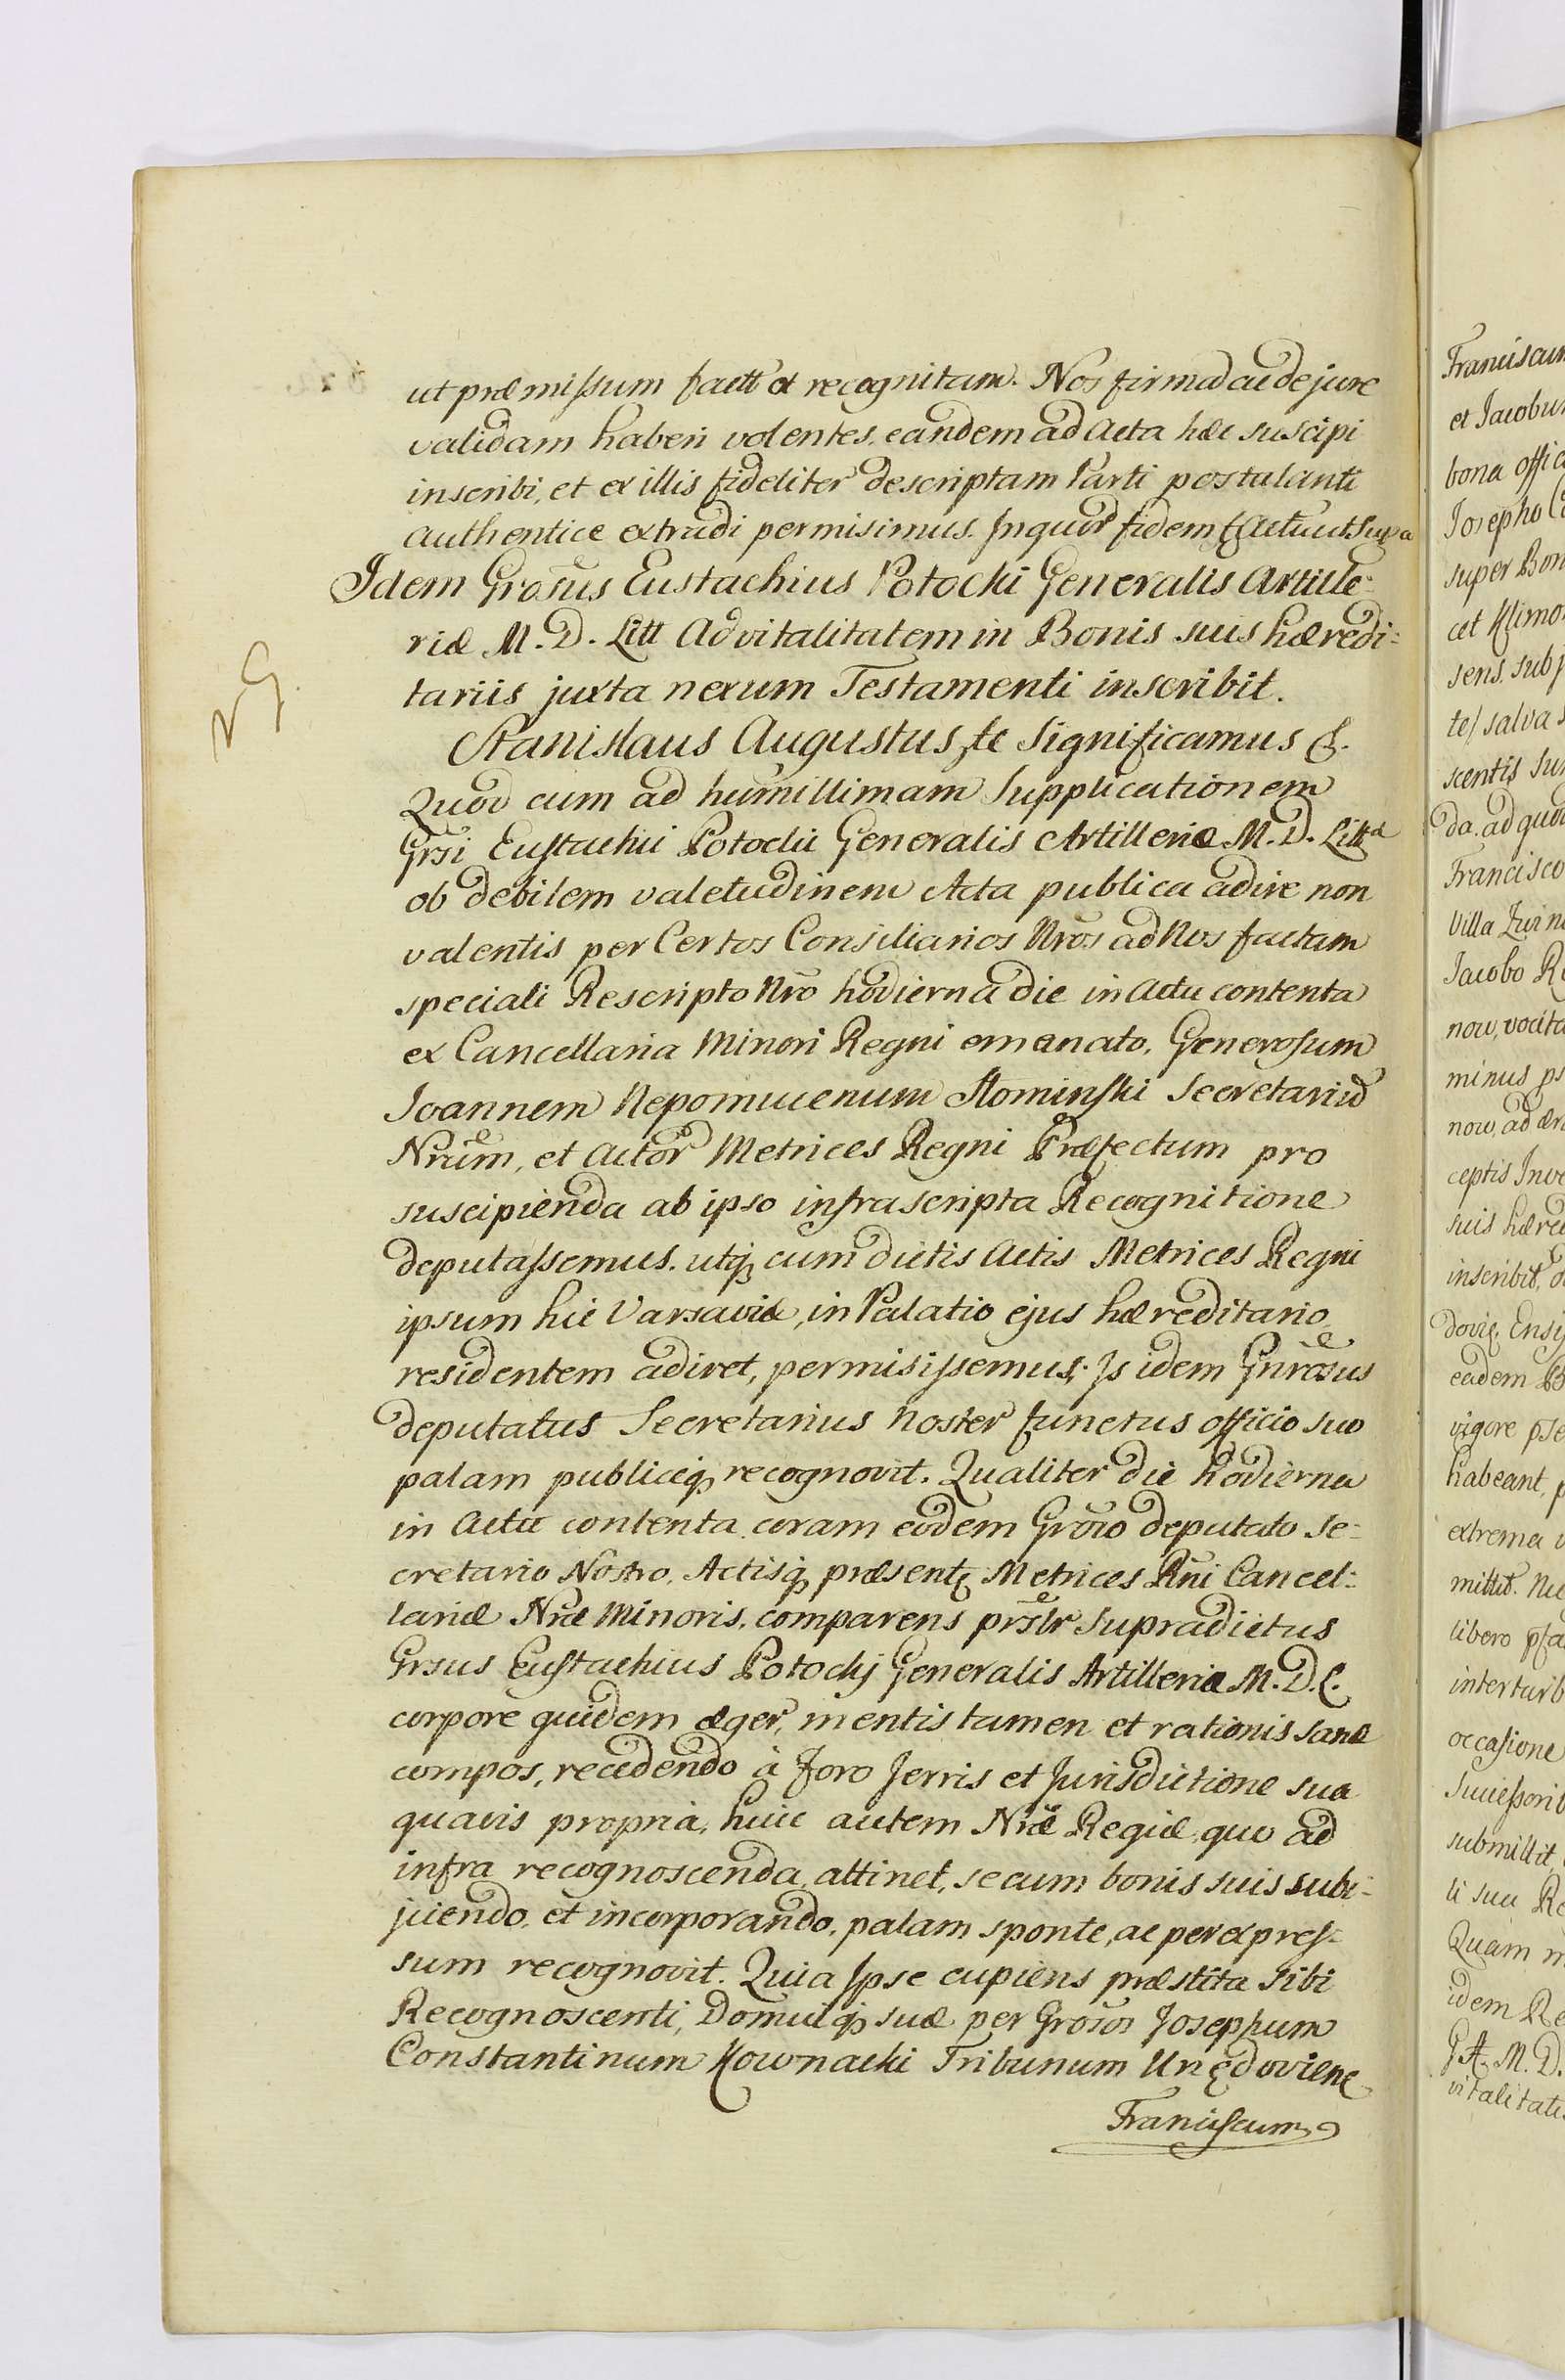 ut præmissum factt et recognitam. Nos firmā ac de jure
validam haberi volentes, eandem ad Acta hæc suscipi
inscribi, et ex illis fideliter descriptam Parti postulanti
authentice extradi permisimus. In quor̃ fidem & Actũ ut Supra
Idem Grosus Eustachius Potocki Generalis Artille=
riæ M. D. Litt Advitalitatem in Bonis suis hæredi=
tariis juxta nexum Testamenti inscribit.
Stanislaus Augustus, &c Significamus &.
Quod cum ad humillimam Supplicationem
Grsi Eustachii Potocki Generalis Artilleriæ M. D. Litt
ob debilem valetudinem Acta publica adire non
valentis per Certos Consiliarios Nros ad Nos factam
speciali Rescripto Nro hodierna die in Actu contenta
ex Cancellaria Minori Regni emanato, Generosum
Joannem Nepomucenum Słominski Secretariũ
Nrum, et Actor̃ Metrices Regni Præfectum pro
suscipienda ab ipso infrascripta Recognitione
deputassemus, utq́ cum dictis Actis Metrices Regni
ipsum hic Varsaviæ, in Palatio ejus hæreditario
residentem adiret, permisissemus; Is idem Gnrosus
deputatus Secretarius Noster functus officio suo
palam publiceq́ recognovit. Qualiter die hodierna
in Actu contenta coram eodem Groso deputato Se=
cretario Nostro, Actisq́ præsentę Metrices Rñi Cancel=
lariæ Nræ Minoris, comparens prslr supradictus
Grsus Eustachius Potockj Generalis Artilleriæ M. D. L.
corpore quidem æger, mentis tamen et rationis sanæ
compos, recedendo à foro Terris et Jurisdictione sua
quavis propria, huic autem Nræ Regiæ, quo ad
infra recognoscenda, attinet, se cum bonis suis subi=
jiendo, et incorporando, palam sponte, ac per expres=
sum recognovit. Quia Ipse cupiens præstita Sibi
Recognoscenti, Domuiq́ suæ per Grosos Josephum
Constantinum Kownacki Tribunum Unędoviene
Franciscum
NG.
Franciscum
et Jacobum
bona offic
Josepho C
super Bon
cet Klimo
sens. subj
te/ salva
scentis Su
da. ad quod
Francisco
Villa
Jacobo R
now, vocita
minus ps
now, ad
ceptis Inve
suis hære
inscribit,
dovię. Ensi
eadem B
vigore pse
habeant, p
extrema v
mittit. Nec
libero
interturb
occasione
Successorib
submittit,
li suu Re
Quam
idem Re
GA. M. D.
vitalitate